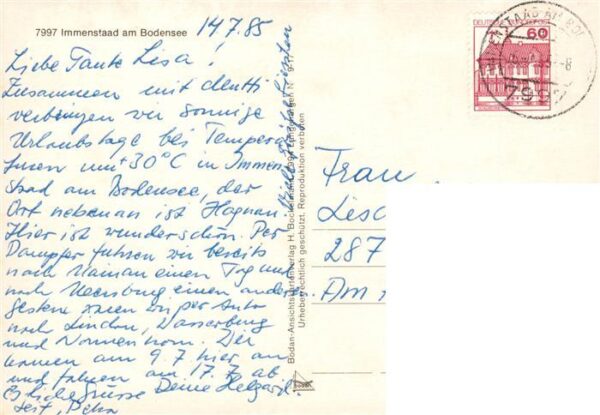 7997 Immenstaad am Bodensee
14.7.85
Liebe Tante Lisa!
Zusammen mit
verbringen wir sonnige
Urlaubstage bei Tempera
turen um +30°C in Immen
staad am Bodensee, der
Ort nebenan ist Hagnau.
Hier ist wunderschön. Per
Dampfer fuhren wir bereits
nach Mainau einen Tag und
nach Meersburg einen anderen.
Gestern waren wir per Auto
nach Lindau, Wasserburg
und Nonnenhorn. Wir
kamen am 9.7. hier an
und fahren am 17.7. ab.
Es Grüsse Deine Helgard.
Petra
Bodan-Ansichtskartenverlag H. Bockelmann
Urheberrechtlich geschützt. Reproduktion verboten
DEUTSCHE BUNDESPOST
60
Frau
287
Am